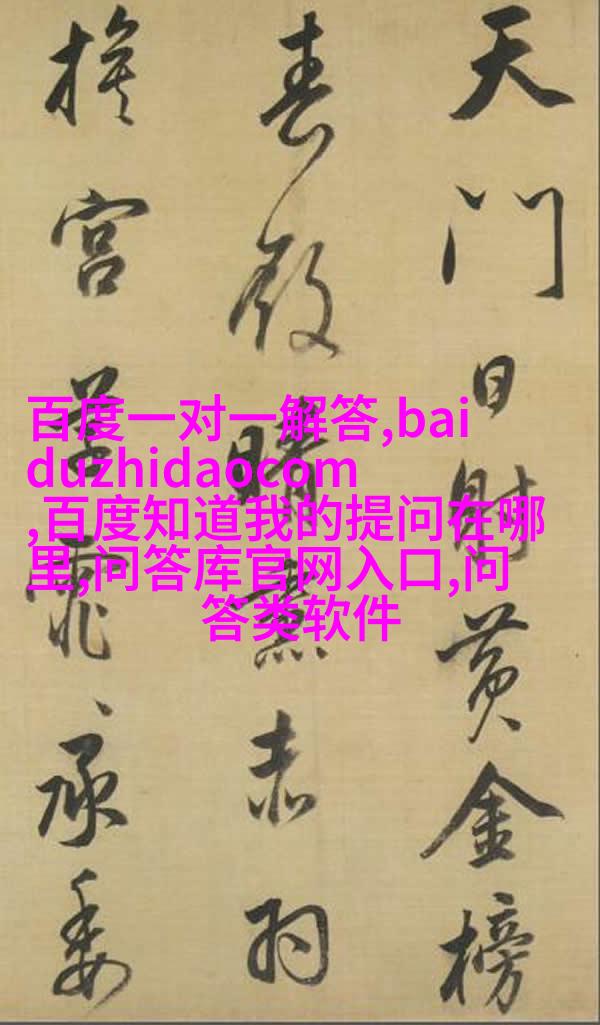 天門日射黄金榜
春殿晴熏赤羽
旗宮草霏、承委
百度一对一解答,bai
duzhidaocom
,百度知道我的提问在哪
里,问答库官网入口,问
答类软件